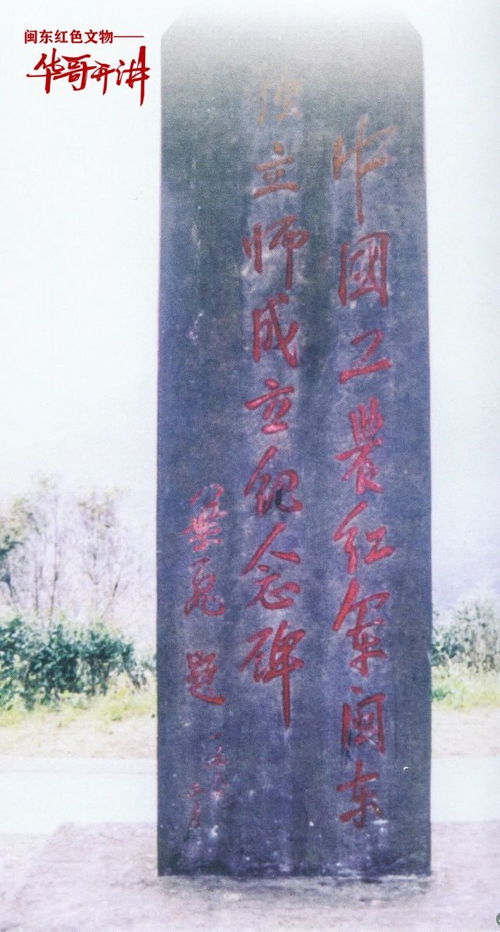 闽东红色文物——
华哥开讲
中國工農红军闽东
独立师成立纪念碑
葉飞题